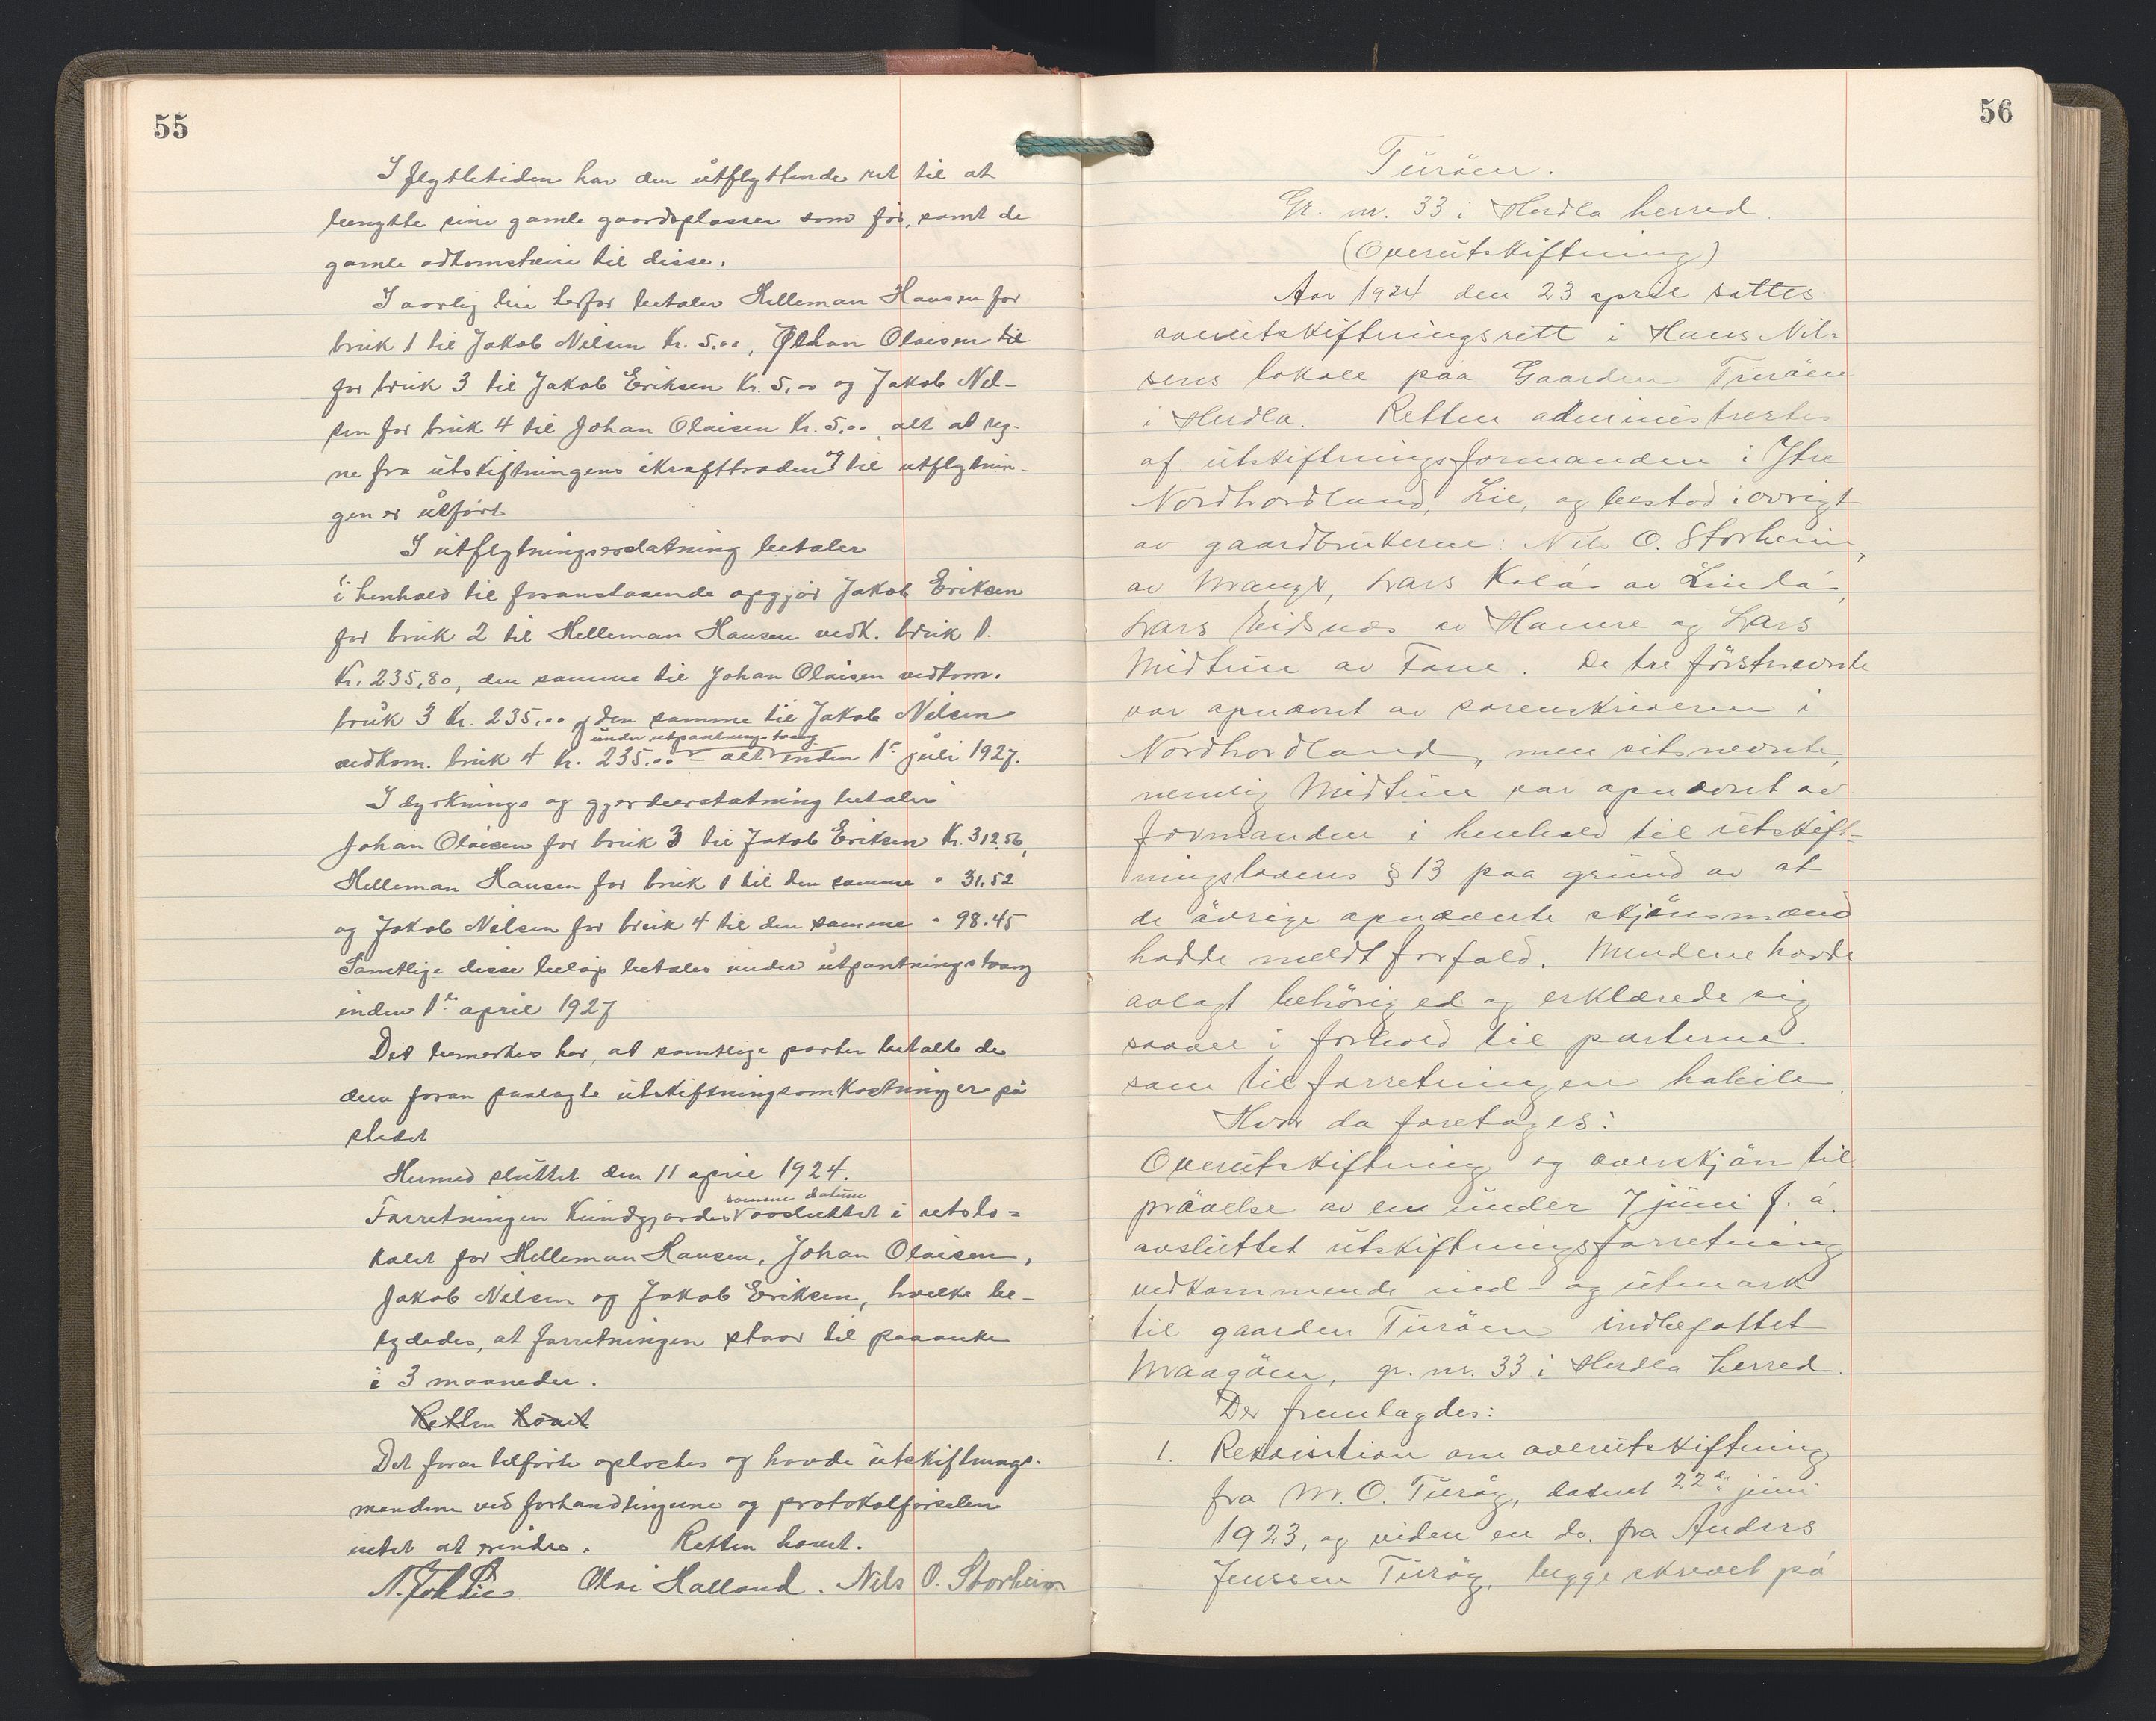 55
I flyttetiden har den utflyttende ret til at
benytte sine gamle gaardsplasser som før, samt de
gamle adkomstveie til disse.
I aarlig leie herfor betaler Helleman Hansen for
bruk 1 til Jakob Nilsen Kr. 5.00, Johan Olaisen til
for bruk 3 til Jakob Eriksen Kr. 5,00 og Jakob Nil-
sen for bruk 4 til Johan Olaisen Kr. 5.00, alt at reg-
ne fra utskiftningens ikrafttræden og til utflytnin-
gen er utført
I utflytningserstatning betaler
i henhold til foranstaaende opgjør Jakob Eriksen
for bruk 2 til Helleman Hansen vedk. bruk 1.
Kr. 235,80, den samme til Johan Olaisen vedkom.
bruk 3 Kr. 235,00 og den samme til Jakob Nilsen
under utpantningstvang
vedkom. bruk 4 kr. 235.00 – alt inden 1ste juli 1927.
I dyrknings og gjerdeerstatning betaler
Johan Olaisen for bruk 3 til Jakob Eriksen Kr. 312.56,
Helleman Hansen for bruk 1 til den samme " 31.52
og Jakob Nilsen for bruk 4 til den samme " 98.45
Samtlige disse beløp betales under utpantningstvang
inden 1ste april 1927
Det bemerkes her, at samtlige parter betalte de
dem foran paalagte utskiftningsomkostninger på
stedet
Hermed sluttet den 11 april 1924.
samme datum
Forretningen kundgjordes avsluttet i retslo=
kalet for Helleman Hansen, Johan Olaisen,
Jakob Nilsen og Jakob Eriksen, hvilke be-
tydedes, at forretningen staar til paaanke
i 3 maaneder.
Retten hævet
Det foran tilførte oplæstes og havde utskiftnings-
mændene ved forhandlingerne og protokolførselen
intet at erindre. Retten hævet.
N. Joh Lie Olai Halland. Nils O. Storheim
56
Turöen.
Gr. nr. 33 i Herdla herred.
(Overutskiftning)
Aar 1924 den 23 april sattes
overutskiftningsrett i Hans Nil=
sens lokale paa Gaarden Turöen
i Herdla. Retten administrertes
af utskiftningsformanden i Ytre
Nordhordland, Lie, og bestod iøvrigt
av gaardbrukerne: Nils O. Storheim,
av Manger, Lars Kolå av Lindå,
Lars Eidsnes av Hamre og Lars
Midtun av Fane. De tre förstnevnte
var opnævnt av sorenskriveren i
Nordhordland, men sitsnevnte,
nemlig Midtun var opnævnt av
formanden i henhold til utskift-
ningslovens § 13 paa grund av at
de övrige opnævnte skjönsmænd
hadde meldt forfald. Mendene havde
avlagt behörig ed og erklærede sig
saavel i forhold til parterne
som til forretningen habile.
Hvor da foretages:
Overutskiftning og overskjön til
prövelse av en under 7 juni f. å.
avsluttet utskiftningsforretning
vedkommende ind- og utmark
til gaarden Turöen indbefattet
Maagöen, gr. nr. 33 i Herdla herred.
Der fremlagdes:
1. Rekvisition om overutskiftning
fra M. O. Turöy, datert 22de juni
1923, og viden en do. fra Anders
Jenssen Turöy, begge skrevet på